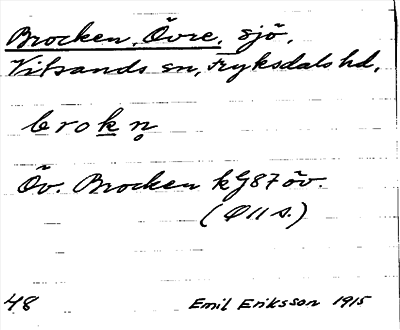 Brocken, Övre, sjö,
Vitsands sn, Fryksdals hd,
brokn̥
Öv. Brocken kG87öv.
(Ö11 s.)
48 Emil Eriksson 1915